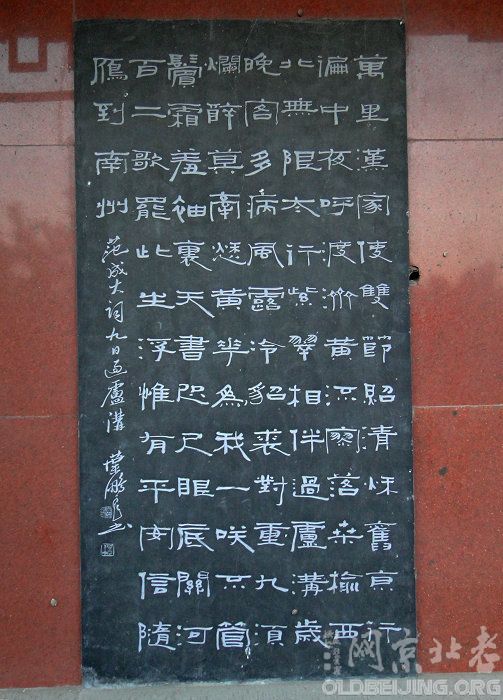 萬里漢家使雙節照清秋舊京行
遍中夜呼度濟黃河寥落桑榆西
北無限太行紫翠相伴過盧溝歲
晚客多病風露冷貂裘對重九須
爛醉莫牽愁黃華為我一咲不管
鬢霜羞袖裏天書咫尺眼底關河
百二歌罷此生浮惟有平安信隨
鴈到南州
范成大詞九日過盧溝
老北京網
OLDBEIJING.ORG